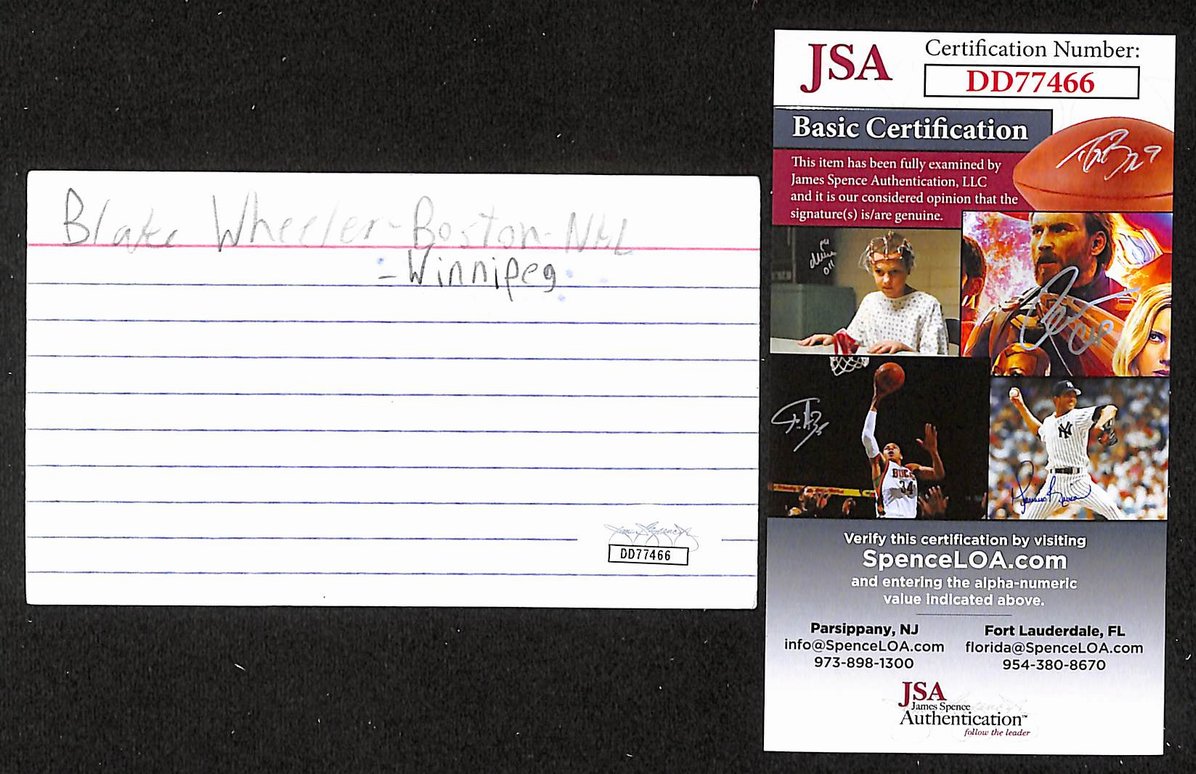 Blake Wheeler-Boston-NHL
-Winnipeg
DD77466
JSA
Certification Number:
DD77466
Basic Certification
This item has been fully examined by
James Spence Authentication, LLC
and it is our considered opinion that the
signature(s) is/are genuine.
BUCKS
34
NY
Verify this certification by visiting
SpenceLOA.com
and entering the alpha-numeric
value indicated above.
Parsippany, NJ
info@SpenceLOA.com
973-898-1300
Fort Lauderdale, FL
florida@SpenceLOA.com
954-380-8670
JSA
James Spence
Authentication™
follow the leader